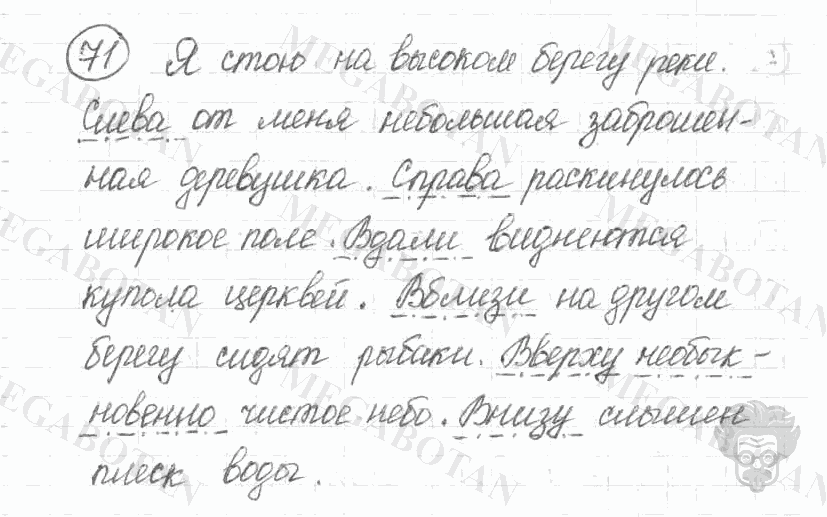 71 Я стою на высоком берегу реки.
Слева от меня небольшая заброшен-
ная деревушка. Справа раскинулось
широкое поле. Вдали виднеются
купола церквей. Вблизи на другом
берегу сидят рыбаки. Вверху необык-
новенно чистое небо. Внизу слышен
плеск воды.
MEGABOTAN